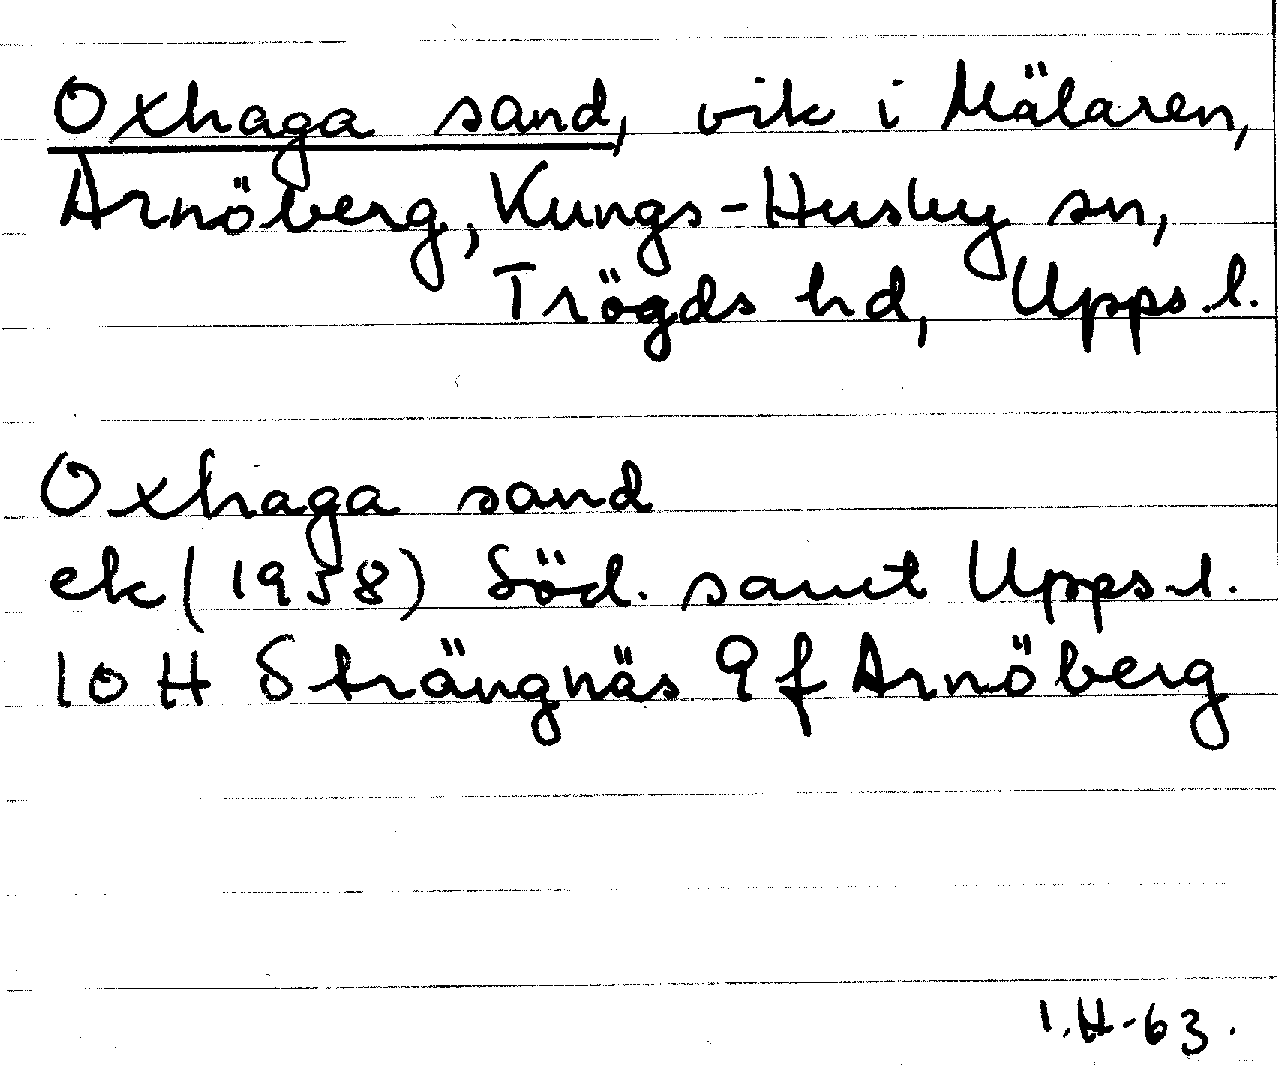 Oxhaga sand, vik i Mälaren,
Arnöberg, Kungs-Husby sn,
Trögds hd, Upps.l.
Oxhaga sand
ek (1958) Söd. samt Upps.l.
10 H Strängnäs 9 f Arnöberg
I.H-63.